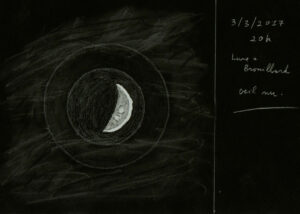 3/3/2017
20h
Lune +
Brouillard
oeil nu.